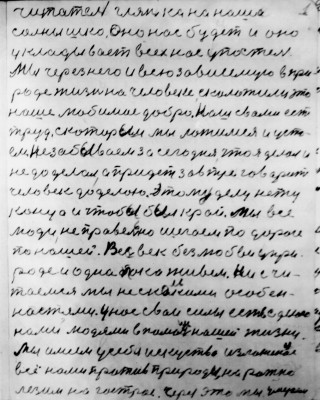 читател глянь ка на наша
солнышко. Оно нас будет и оно
укладывает всех нас упостел.
Мы через него и всю зависемую в при
роде жизнь на человеке сложилис это
наше любимое добро. Наш с вами ест
труд, с которым мы ложимся и уста
ем. Незабываем за сегодня что я делал и
не доделал а придет завтра говорит
человек доделаю. Этому делу нету
конца и чтобы был край. Мы все
люди неправельно шегаем по дороге
по нашей. Весь век без любви у при
роде и одна пока живем. Не счи-
таемся мы нескакими особен-
ностями. У нас свои силы есть сделано
нами людями в помощ нашей жизни.
Мы имеем у себя искуство изложеное
всё нами против природы на рожно
лезим на гострое. Через это мы